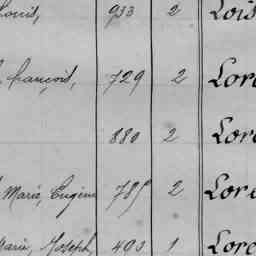 Louis, 933 2 Lois
François, 729 2 Lore
880 2 Lore
Marie, Eugène 2 Lore
Marie, Joseph, 403 1 Lore